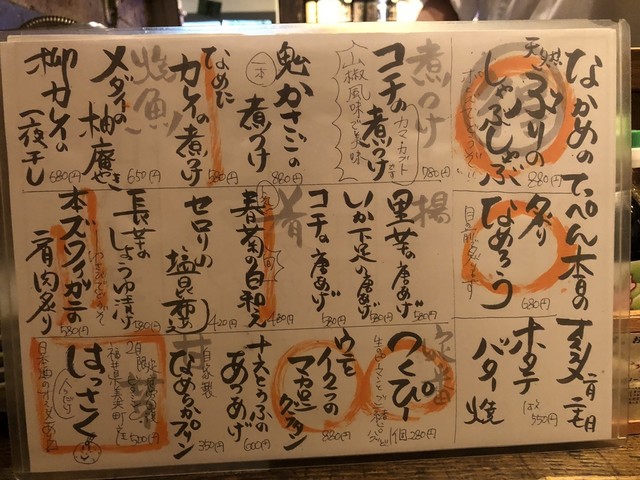 なかめのてっぺん本日のオススメ
二月二七日
天然
ぶりの
しゃぶしゃぶ
880円
炙り
なめろう
目の前で炙ります
680円
ホタテ
バター焼
550円
煮つけ
コチの煮つけ
カマ・カット
山椒風味で美味
780円
鬼かさごの
煮つけ
一本
880円
なめた
カレイの煮つけ
580円
焼魚
メダイの柚庵やき
650円
柳カレイの
一夜干し
680円
揚
里芋の唐あげ
580円
いか下足の唐あげ
580円
コチの唐あげ
580円
肴
春菊の白和え
480円
セロリの
塩昆布あえ
420円
長芋の
しょうゆ漬け
580円
本ズワイガニの
肩肉炙り
580円
定番
つくぴー
1個 280円
ウニ
イクラの
マカロニ
グラタン
880円
ナスとうふの
あつあげ
600円
自家製
なめらかプリン
350円
はっさく
2月限定
福井県美浜町
500円
日本酒のオススメあるよ